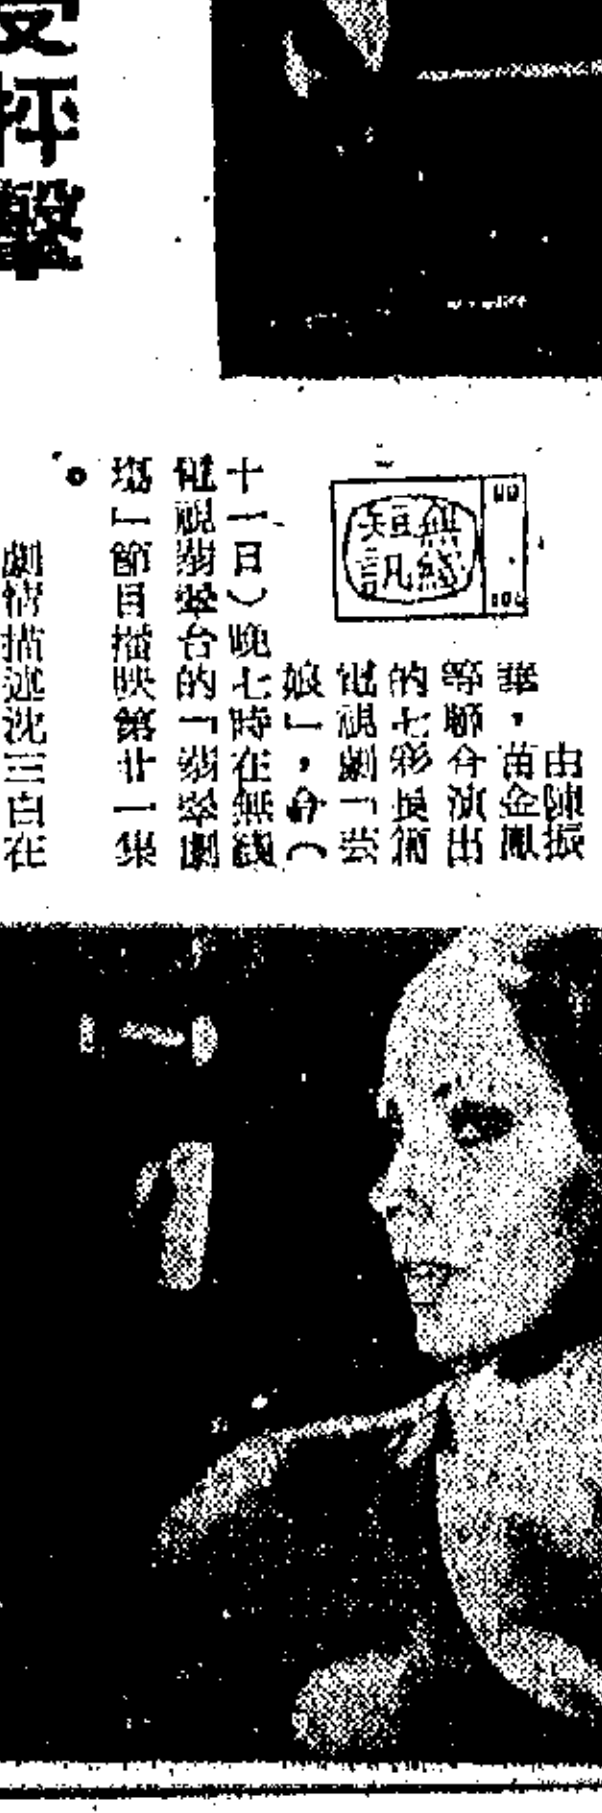 受抨擊
無綫
短訊
由陳振
華，苗金鳳
等聯合演出
的七彩長篇
電視劇「芸
娘」，今（
十一日）晚七時在無綫
電視翡翠台的「翡翠劇
場」節目播映第廿一集
。
劇情描述沈三白在